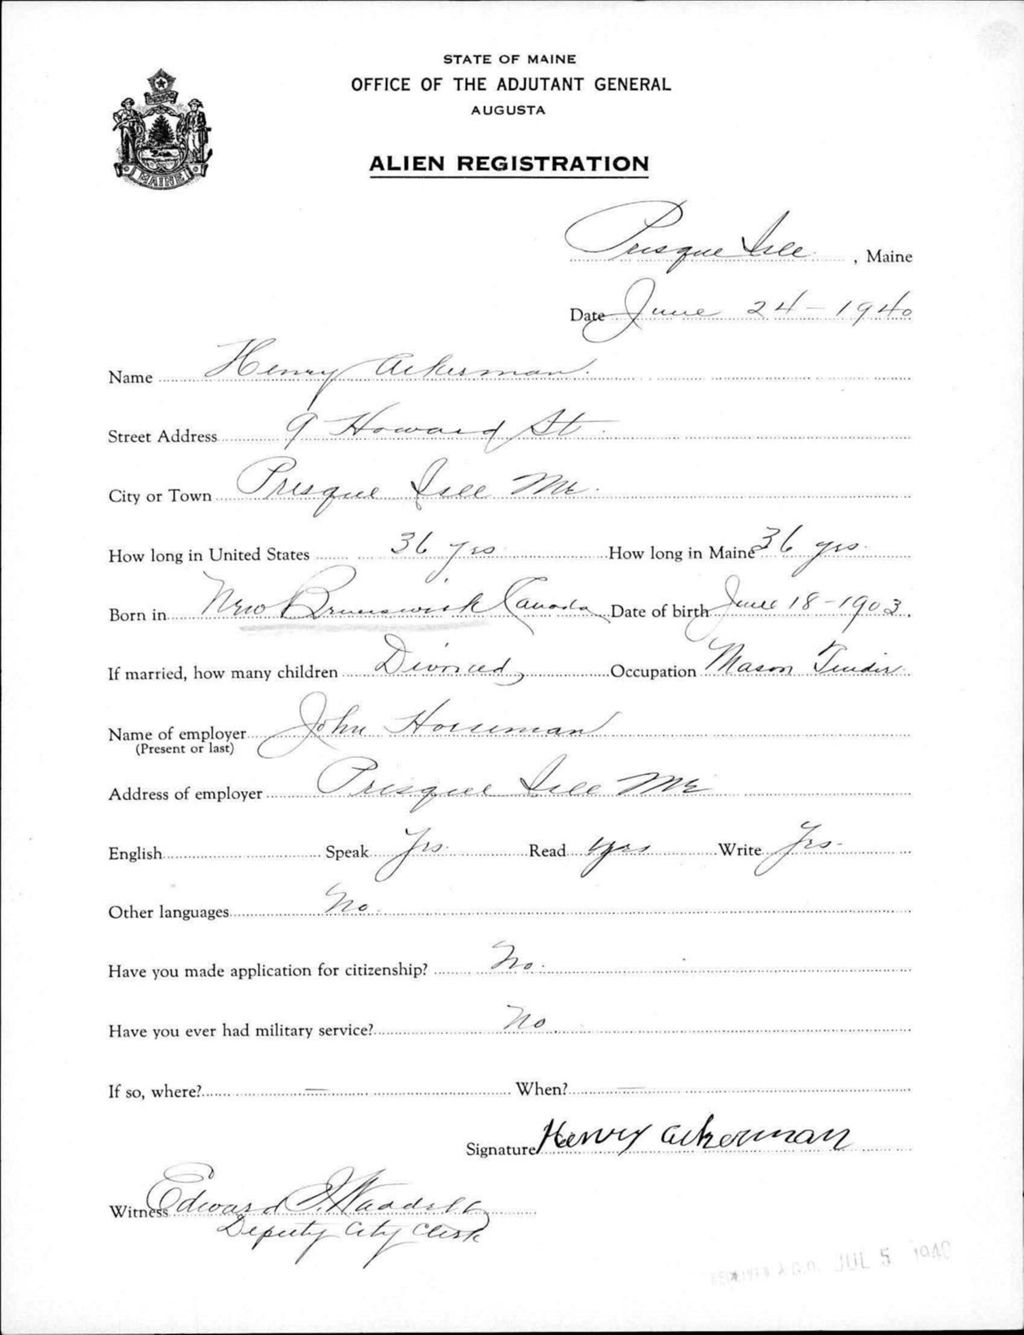 STATE OF MAINE
OFFICE OF THE ADJUTANT GENERAL
AUGUSTA
MAINE
ALIEN REGISTRATION
Presque Isle, Maine
Date June 24 - 1940
Name Henry Ackerman.
Street Address 9 Howard St.
City or Town Presque Isle Me.
How long in United States 36 yrs How long in Maine 36 yrs.
Born in New Brunswick Canada Date of birth June 18 - 1903.
If married, how many children Divorced, Occupation Mason Tender.
Name of employer John
(Present or last)
Address of employer Presque Isle Me
English Speak Yes. Read yes Write Yes-
Other languages No.
Have you made application for citizenship? No.
Have you ever had military service? No.
If so, where? — When? —
Signature Henry Ackerman
Witness Edward Waddell
Deputy City Clerk
RECEIVED A.G.O. JUL 5 1940